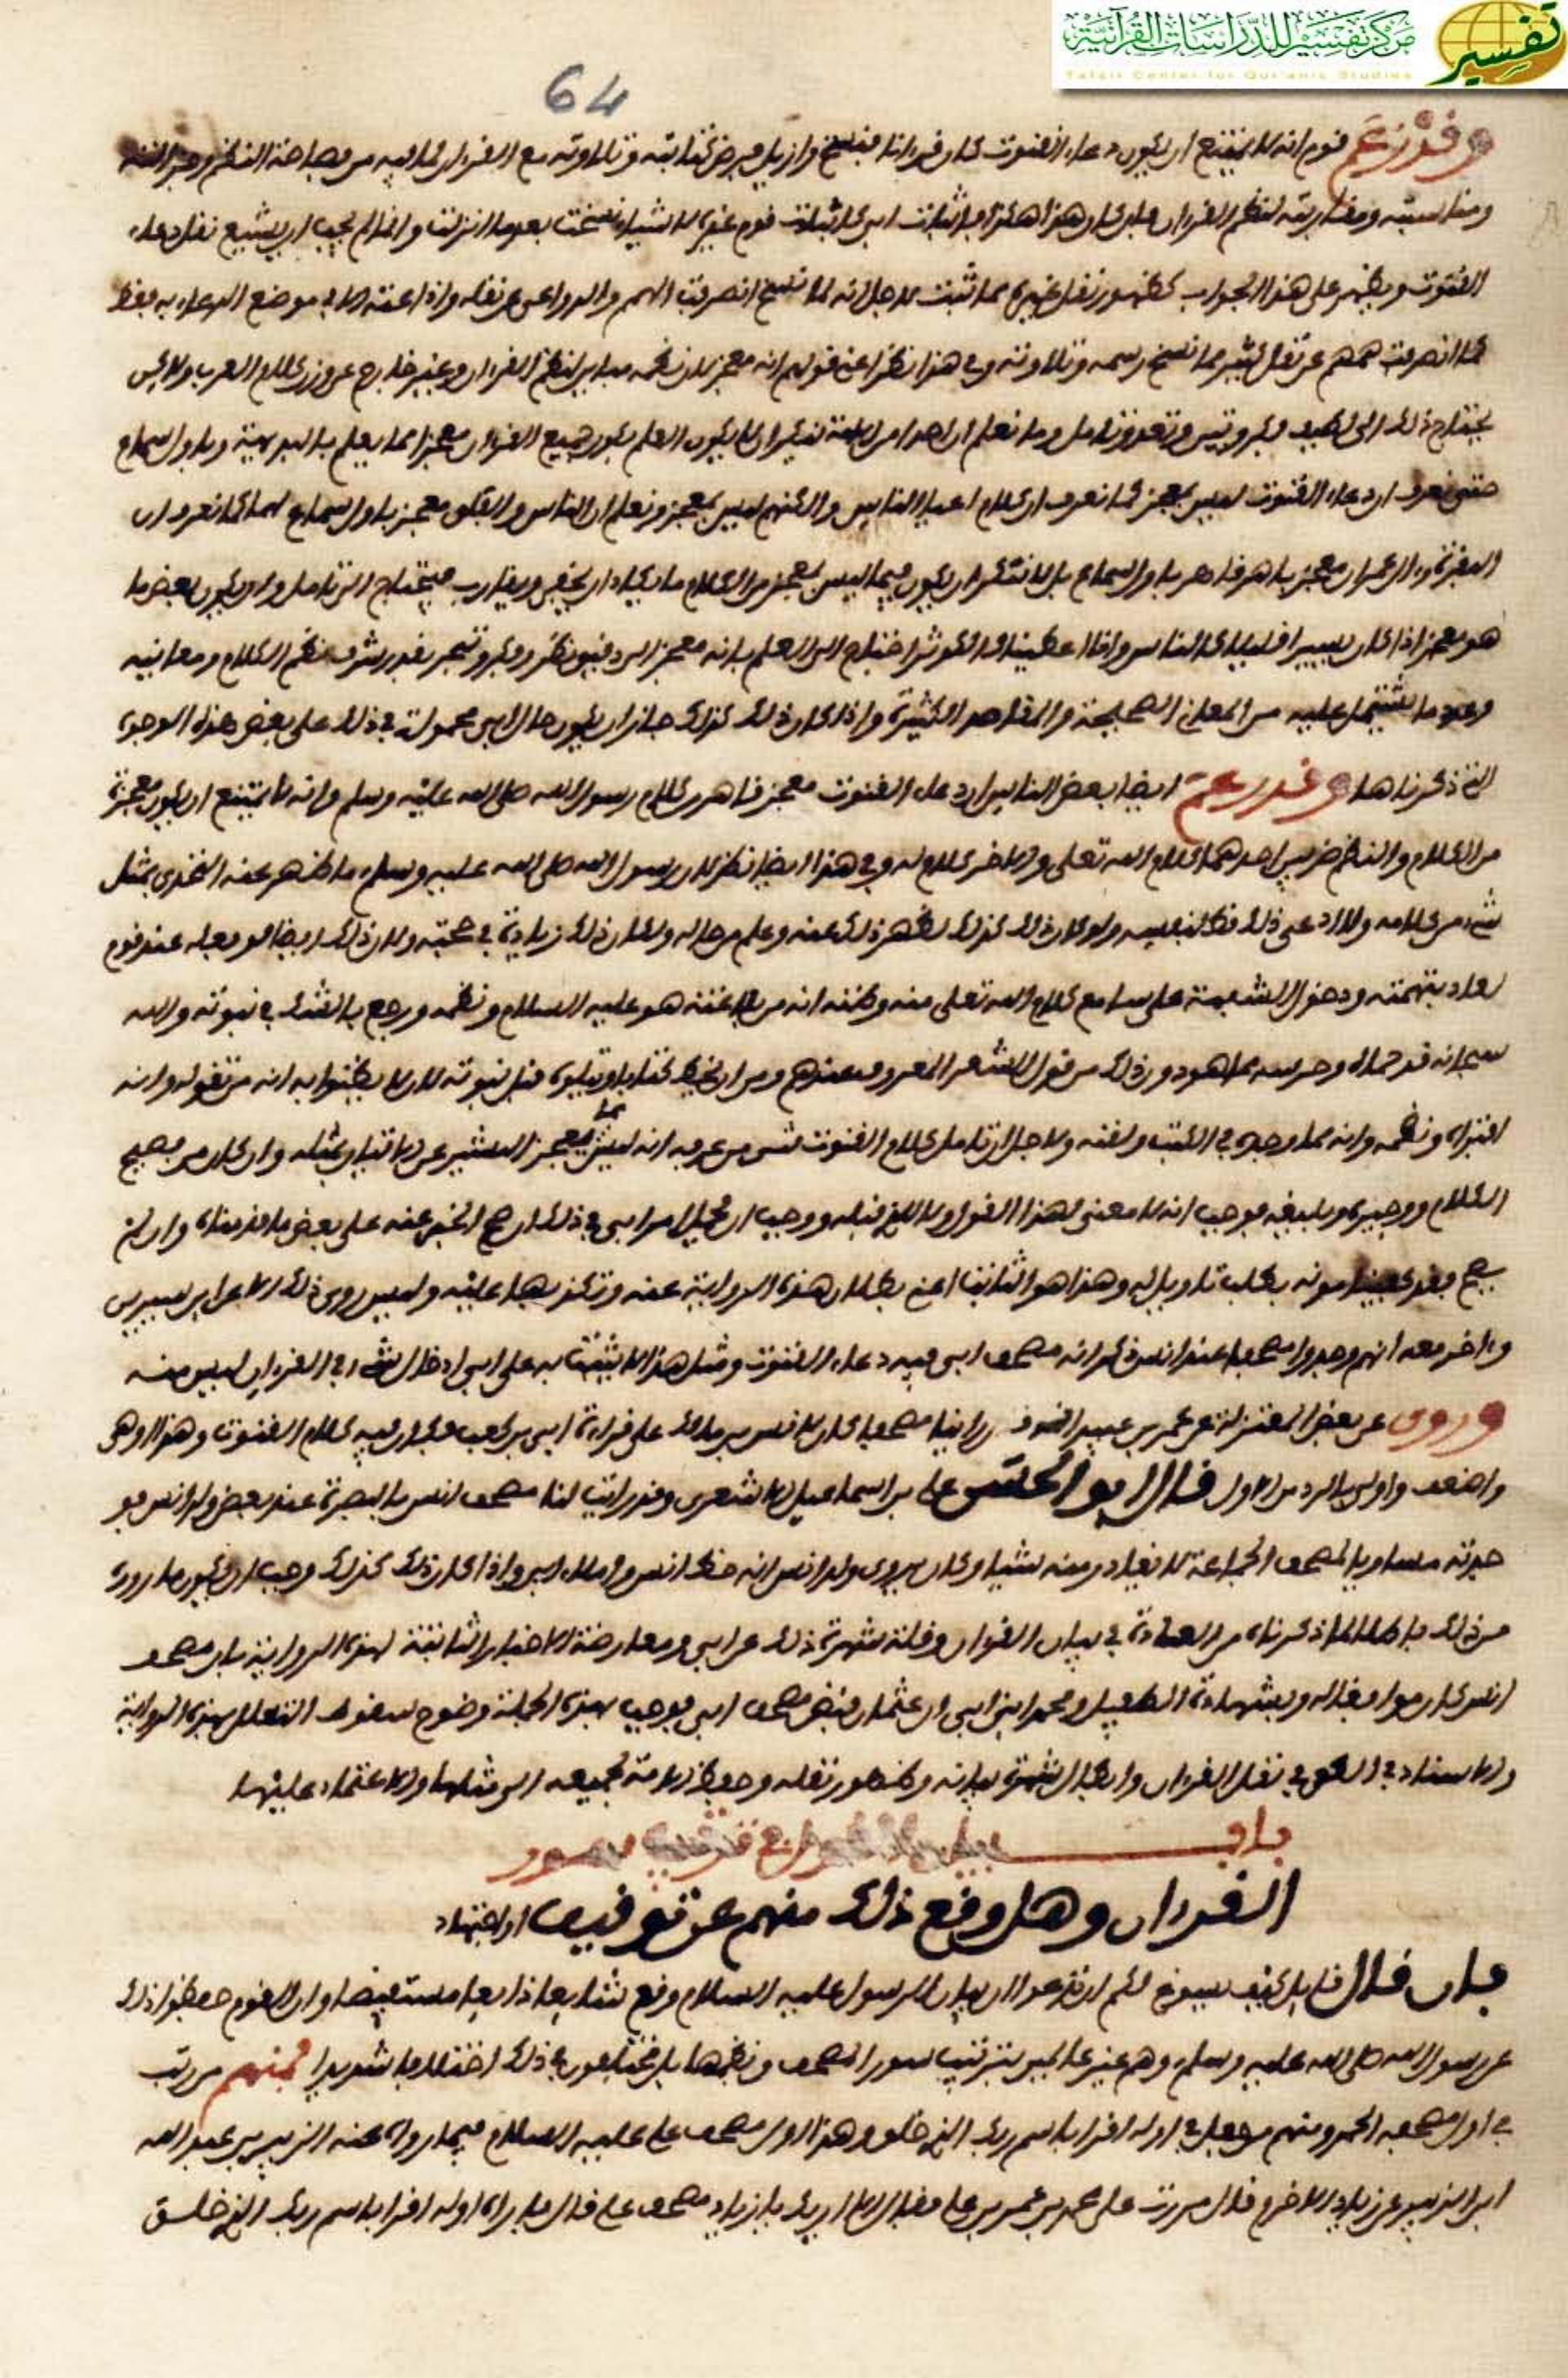 مركز تفسير للدراسات القرآنية
Tafsir Center for Qur'anic Studies
تفسير
64
وقد زعم قوم انه لا يمتنع ان يكون دعاء القنوت كان قرءانا فنسخ وازيل فرض كتابته وتلاوته مع القرءان لما فيه من فصاحة النظم
ومناسبته ومقاربته لنظم القرءان فان كان هذا هكذا فاثبات ابي كاثبات قوم غيره لاشياء نسخت بعد ما انزلت واذا لم يجب ان يشيع نقل دعاء
القنوت ويظهر على هذا الجواب كظهور نقل غيره مما ثبت لاجل انه لما نسخ انصرفت الهمم والدواعي عن نقله واذاعته الا في موضع الدعاء به فقط
كما انصرفت هممهم عن نقل كثير مما نسخ رسمه وتلاوته وفي هذا نظر اعني قولهم انه معجز لان نظمه مباين لنظم القرءان وغير خارج عن وزن كلام العرب وليس
يحتاج ذلك الى لطيف فكر وتيس وتعذر تامل وما نعلم ان احدا من الامة ينكر ان لا يكون العلم بكون جميع القرءان معجزا مما يعلم بالبديهية وباول سماع
حتى نعرف ان دعاء القنوت ليس بمعجز كما نعرف ان كلام اغبياء الناس والكنهم ليس بمعجز ونعلم ان الناس والفلق معجز باول سماع لهما كما نعرف ان
البقرة وءال عمران معجز باهر قاهر باول سماع بل لا ننكر ان يكون فيما ليس بمعجز من الكلام ما يكاد ان يخفى ويقارب فيحتاج الى تامل وان يكون بعض ما
هو معجز اذا كان يسيرا قليلا كالناس وانا اعطيناك الكوثر احتاج الى العلم بانه معجز الى دقيق نظر وفكر وتبحر بقدر شرف نظم الكلام ومعانيه
وعدد ما اشتمل عليه من المعاني الصحيحة والمقاصد الكثيرة واذا كان ذلك كذلك جاز ان يكون حال ابي محمولة في ذلك على بعض هذه الوجوه
التي ذكرناها وقد زعم ايضا بعض الناس ان دعاء القنوت معجز قاهر من كلام رسول الله صلى الله عليه وسلم وانه لا يمتنع ان يكون معجزة
من الكلام والنظم ضربين احدهما كلام الله تعلى والاخر كلام له وفي هذا ايضا نظر لان رسول الله صلى الله عليه وسلم ما ظهر عنه التحدي بمثل
شيء من كلامه ولا ادعى ذلك قط لنفسه ولو كان ذلك كذلك لظهر ذلك عنه وعلم من حاله ولكان ذلك زيادة في حجته ولان ذلك ايضا لو فعله عند قوم
لعاد بتهمته ودخول الشبهة على سامع كلام الله تعلى منه وظنه انه من بلاغته هو عليه السلام ونظمه ورجع بالشك في نبوته والله
سبحانه قد حماه وحرسه مما هو دون ذلك من قول الشعر المعروف عندهم ومن ان يخط كتابا ويتلوه قبل نبوته لان لا يظنوا به انه من تقوله وانه
افتراه ونظمه وانه مما وجده في الكتب ولقنه ولاجل ان تامل كلام القنوت من عرفه انه ليس مما يعجز البشر عن الاتيان بمثله وان كان من فصيح
الكلام ووجيزه وبليغه فوجب انه لا معنى لهذا القول ولا للذي قبله ووجب ان يحمل امر ابي في ذلك ان صح الخبر عنه على بعض ما قدمناه وان لم
يصح فقد كفينا مونه بطلب تاويل له وهذا هو الثابت اعني بطلان هذه الرواية عنه وتكذبها عليه وليس روى ذلك الا عن ابن سيرين
وءاخر معه انهم وجدوا مصحفا عند انس ذكر انه مصحف ابي فيه دعاء القنوت ومثل هذا لا يثبت به على ابي ادخال شيء في القرءان ليس منه
وروى عن بعض المعتزلة عن عمر بن عبيد راينا مصحفا كان لانس بن مالك على قراءة ابي بن كعب فكان فيه كلام القنوت وهذا اوهى
واضعف واولى بالرد من الاول قال ابو الحسن علي بن اسماعيل الاشعري وقد رايت انا مصحف انس بالبصرة عند بعض ولد انس فو
جدته مساويا لمصحف الجماعة لا يغادر منه شيئا وكان يروى ولد انس انه خط انس واملاء ابي واذا كان ذلك كذلك وجب ان يكون ما روى
من ذلك باطلا لما ذكرناه من العادة في بيان القرءان وقلة شهرة ذلك عن ابي ومعارضة الاخبار الثابتة لهذه الرواية بان مصحف
انس كان موافقا له وبشهادة الطفيل ومحمد ابني ابي ان عثمان قبض مصحف ابي فوجب بهذه الجملة وضوح سقوط التعلل بهذه الرواية
والاستناد في الطعن في نقل القرءان وابطال شهرة بيانه وظهور نقله وحفظ الامة لجميعه الى مثلها والاعتماد عليها
باب بيان القول في ترتيب سور
القرءان وهل وقع ذلك منهم عن توقيف او اجتهاد
فان قال قايل كيف يسوغ لكم ان تدعوا ان بيان الرسول عليه السلام وقع شايعا ذايعا مستفيضا وان القوم حفظوا ذلك
عن رسول الله صلى الله عليه وسلم وهم غير عالمين بترتيب سور المصحف ونظمها بل مختلفون في ذلك اختلافا شديدا فمنهم من رتب
في اول مصحفه الحمد ومنهم من جعل في اوله اقرا باسم ربك الذي خلق وهذا اول مصحف علي عليه السلام فيما رواه عنه الزبير بن عبد الله
ابن الزبير عن زياد الاخرم قال مررت على محمد بن عمر بن علي فقال الا اريك يا زياد مصحف علي قال فاراه اوله اقرا باسم ربك الذي خلق